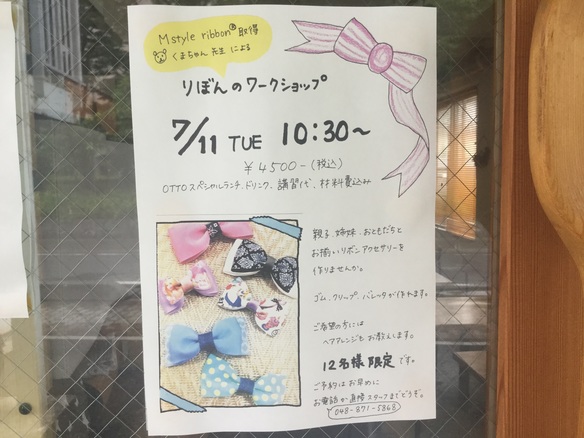 Mstyle ribbon® 取得
くまちゃん 先生 による
りぼんのワークショップ
7/11 TUE 10:30〜
¥4500-(税込)
OTTOスペシャルランチ、ドリンク、講習代、材料費込み
親子、姉妹、おともだちと
お揃いリボンアクセサリーを
作りませんか。
ゴム、クリップ、バレッタが作れます。
ご希望の方には
ヘアアレンジもお教えします。
12名様限定です。
ご予約はお早めに
お電話か直接スタッフまでどうぞ。
048-871-5868